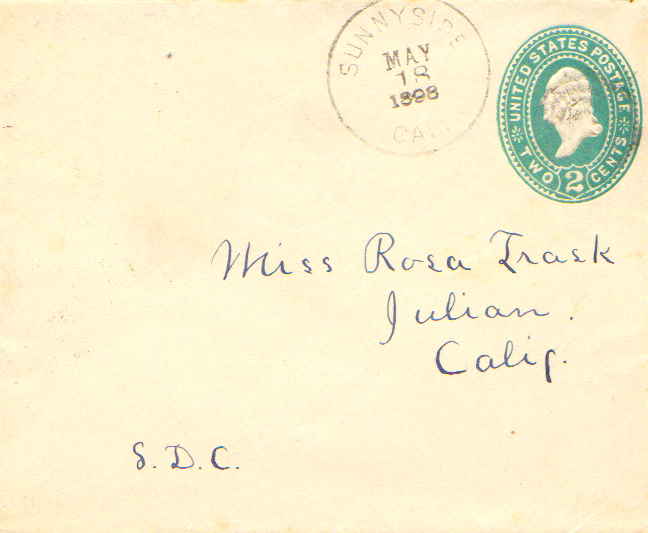 SUNNYSIDE
MAY
18
1898
CAL.
UNITED STATES POSTAGE
TWO 2 CENTS
Miss Rosa Trask
Julian.
Calif.
S. D. C.